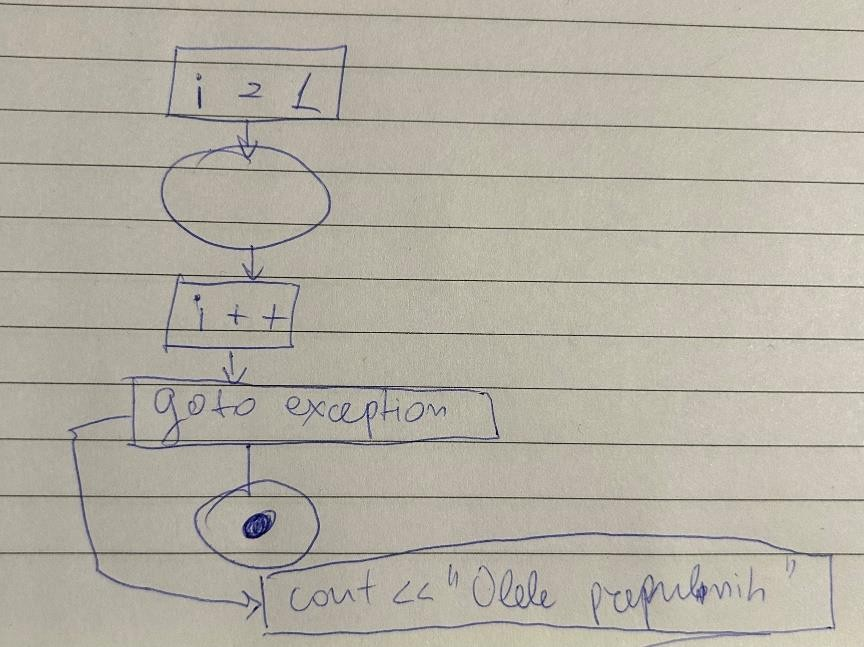 i = 1
i ++
goto exception
cout << "Olele prepulnih"